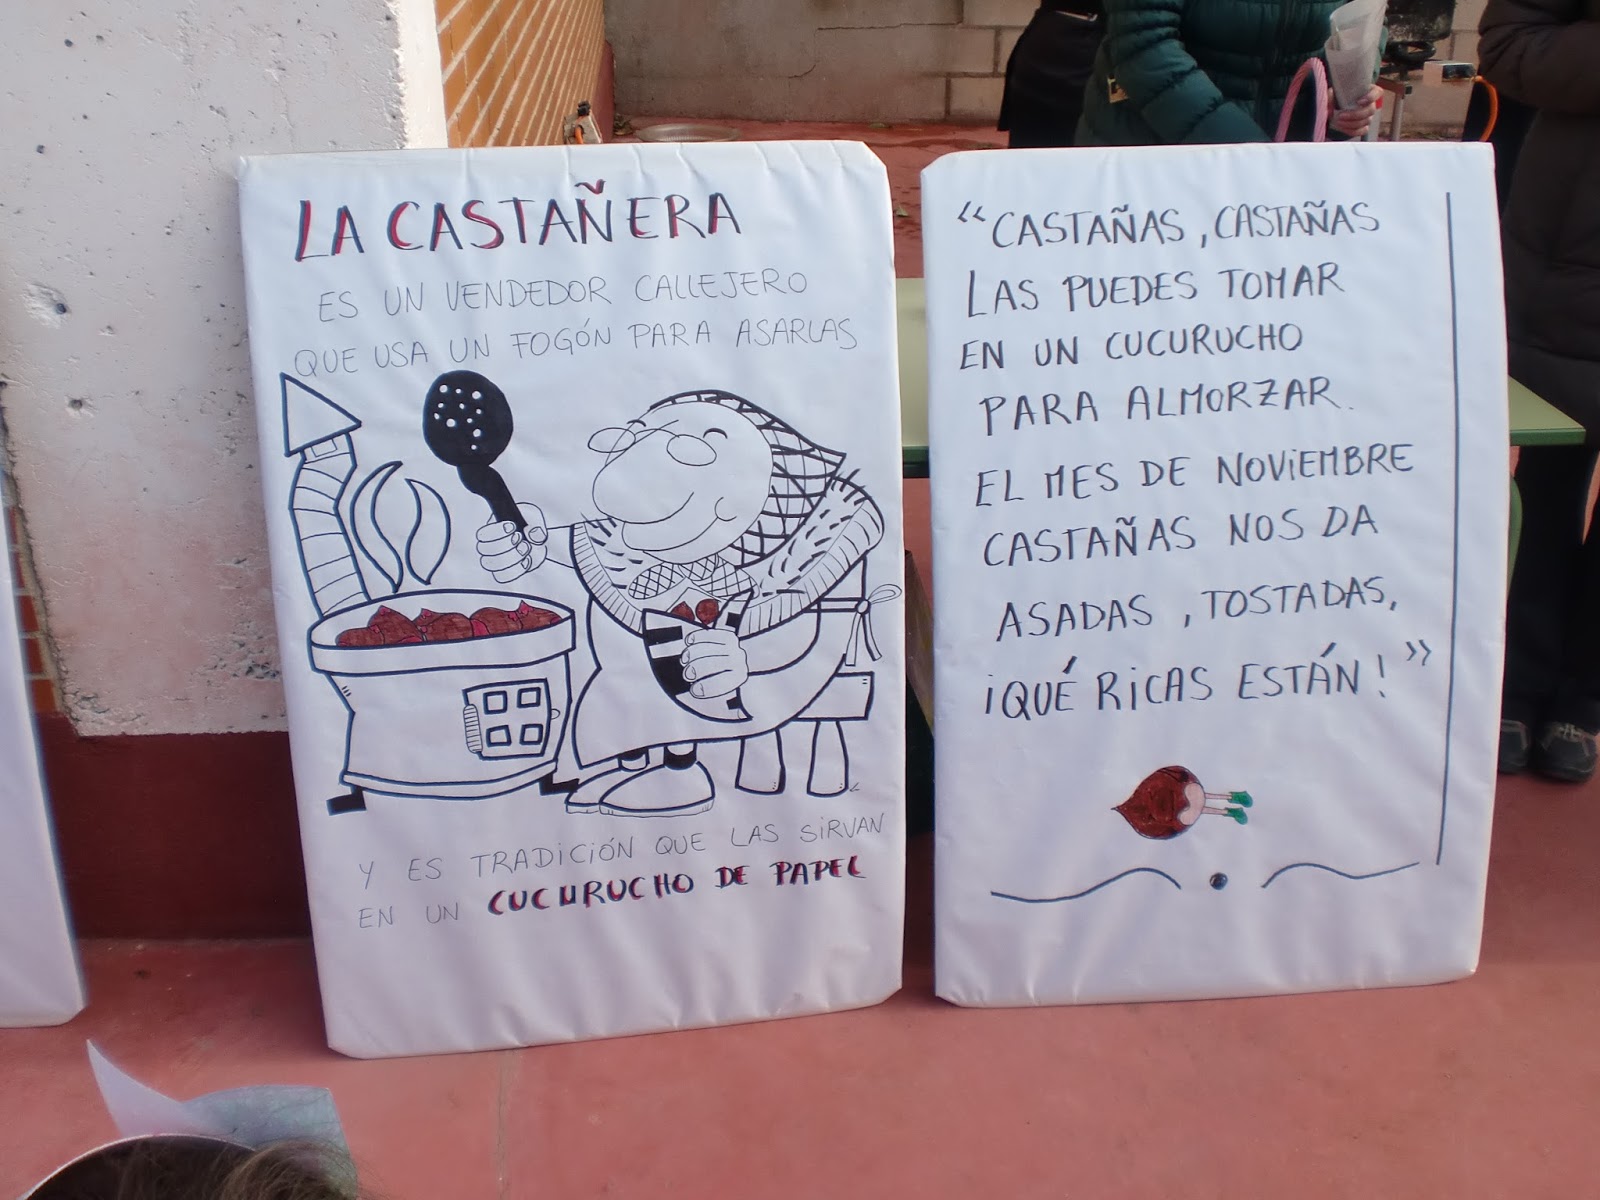 LA CASTAÑERA
ES UN VENDEDOR CALLEJERO
QUE USA UN FOGÓN PARA ASARLAS
Y ES TRADICIÓN QUE LAS SIRVAN
EN UN CUCURUCHO DE PAPEL
“CASTAÑAS, CASTAÑAS
LAS PUEDES TOMAR
EN UN CUCURUCHO
PARA ALMORZAR.
EL MES DE NOVIEMBRE
CASTAÑAS NOS DA
ASADAS, TOSTADAS,
¡QUÉ RICAS ESTÁN!”